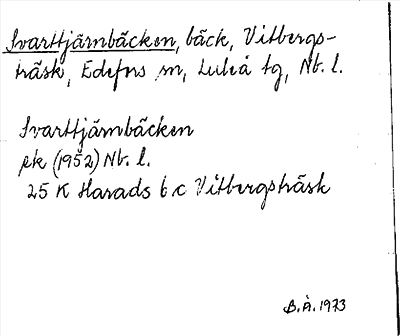 Svarttjärnbäcken, bäck, Vitbergs-
träsk, Edefors sn, Luleå tg, Nb. l.
Svarttjärnbäcken
ek (1952) Nb. l.
25 K Harads 6 c Vitbergsträsk
B. Å. 1973